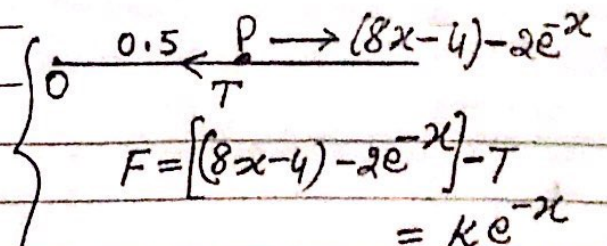 0.5 P → (8x-4)-2e^{-x}
O T
F = [(8x-4)-2e^{-x}]-T
= ke^{-x}